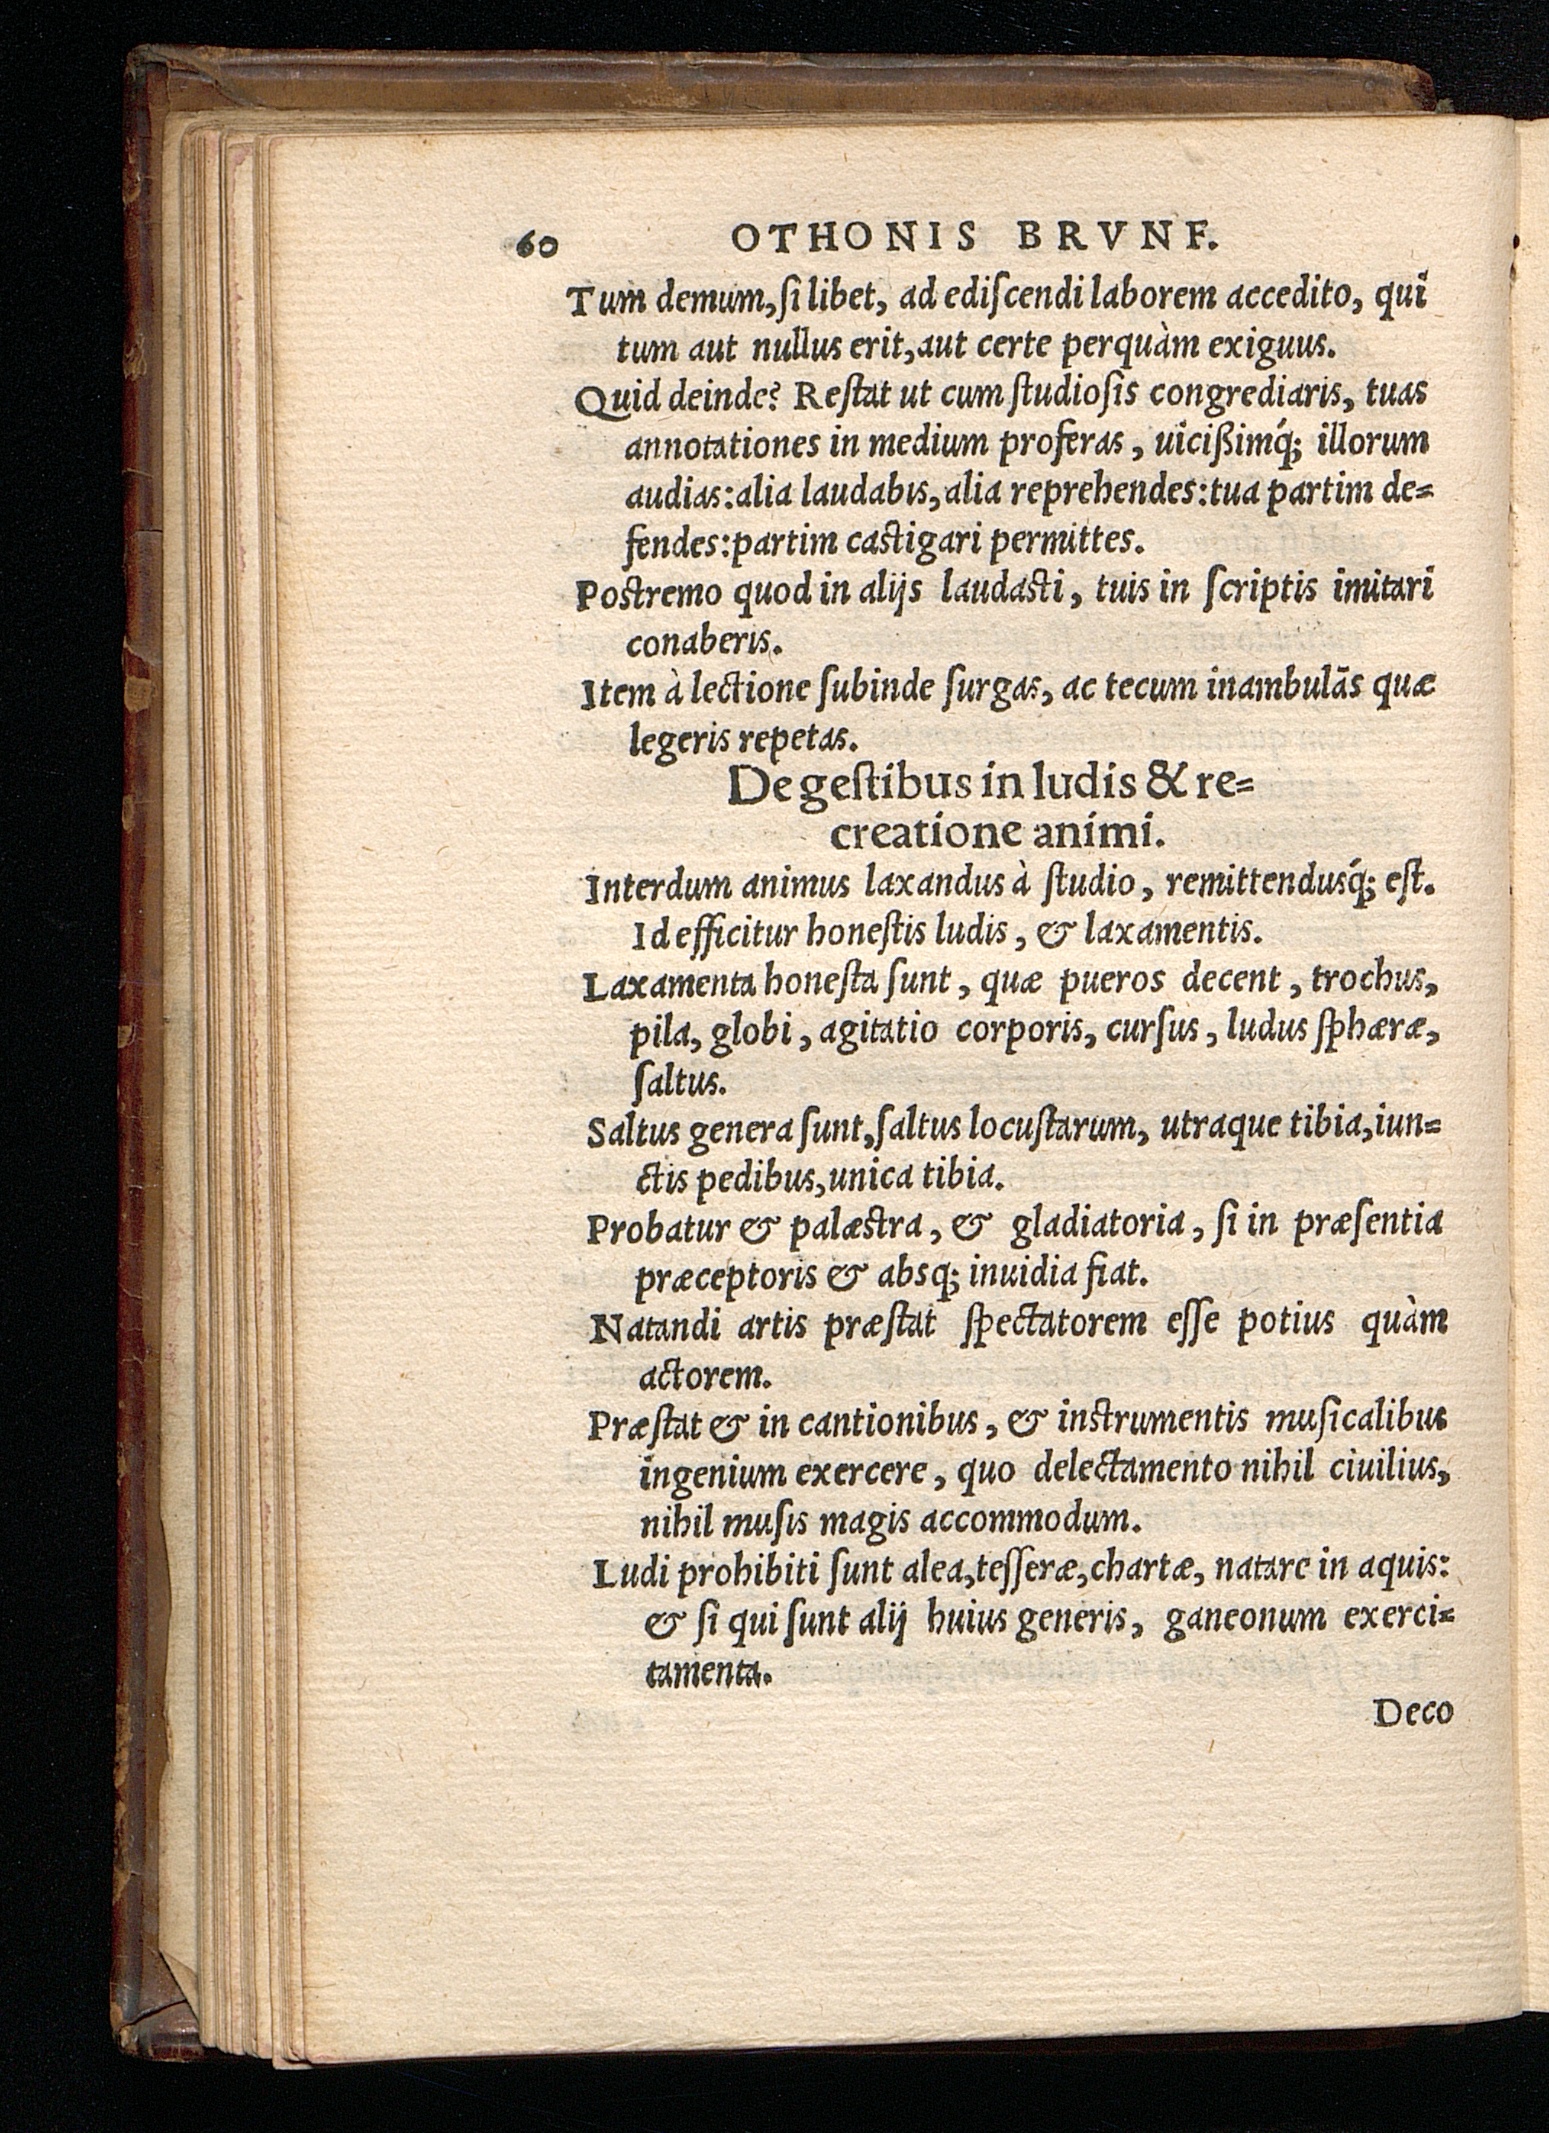 60 OTHONIS BRVNF.
Tum demum, ſi libet, ad ediſcendi laborem accedito, qui
tum aut nullus erit, aut certe perquàm exiguus.
Quid deinde? Reſtat ut cum ſtudioſis congrediaris, tuas
annotationes in medium proferas, uicißimq́; illorum
audias: alia laudabis, alia reprehendes: tua partim de=
fendes: partim caſtigari permittes.
Poſtremo quod in alijs laudaſti, tuis in ſcriptis imitari
conaberis.
Item à lectione ſubinde ſurgas, ac tecum inambulãs quæ
legeris repetas.
De geſtibus in ludis & re=
creatione animi.
Interdum animus laxandus à ſtudio, remittendusq́; eſt.
Id efficitur honeſtis ludis, & laxamentis.
Laxamenta honeſta ſunt, quæ pueros decent, trochus,
pila, globi, agitatio corporis, curſus, ludus ſphæræ,
ſaltus.
Saltus genera ſunt, ſaltus locuſtarum, utraque tibia, iun=
ctis pedibus, unica tibia.
Probatur & palæſtra, & gladiatoria, ſi in præſentia
præceptoris & absq; inuidia fiat.
Natandi artis præſtat ſpectatorem eſſe potius quàm
actorem.
Præſtat & in cantionibus, & inſtrumentis muſicalibus
ingenium exercere, quo delectamento nihil ciuilius,
nihil muſis magis accommodum.
Ludi prohibiti ſunt alea, teſſeræ, chartæ, natare in aquis:
& ſi qui ſunt alij huius generis, ganeonum exerci=
tamenta.
Deco